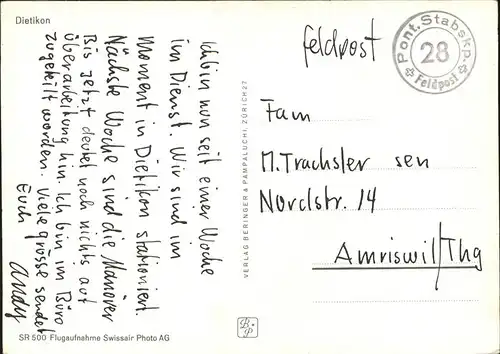 Dietikon
Ich bin nun seit einer Woche
im Dienst. Wir sind im
Moment in Dietikon stationiert.
Nächste Woche sind die Manöver
Bis jetzt deutet noch nichts auf
Überarbeitung hin. Ich bin im Büro
zugeteilt worden. Viele Grüsse sendet
Euch
Andy
SR 500 Flugaufnahme Swissair Photo AG
VERLAG BERINGER & PAMPALUCHI, ZÜRICH 27
B+P
Feldpost
Pont. Stabskp.
28
Feldpost
Fam
M. Trachsler sen
Nordstr. 14
Amriswil/Thg